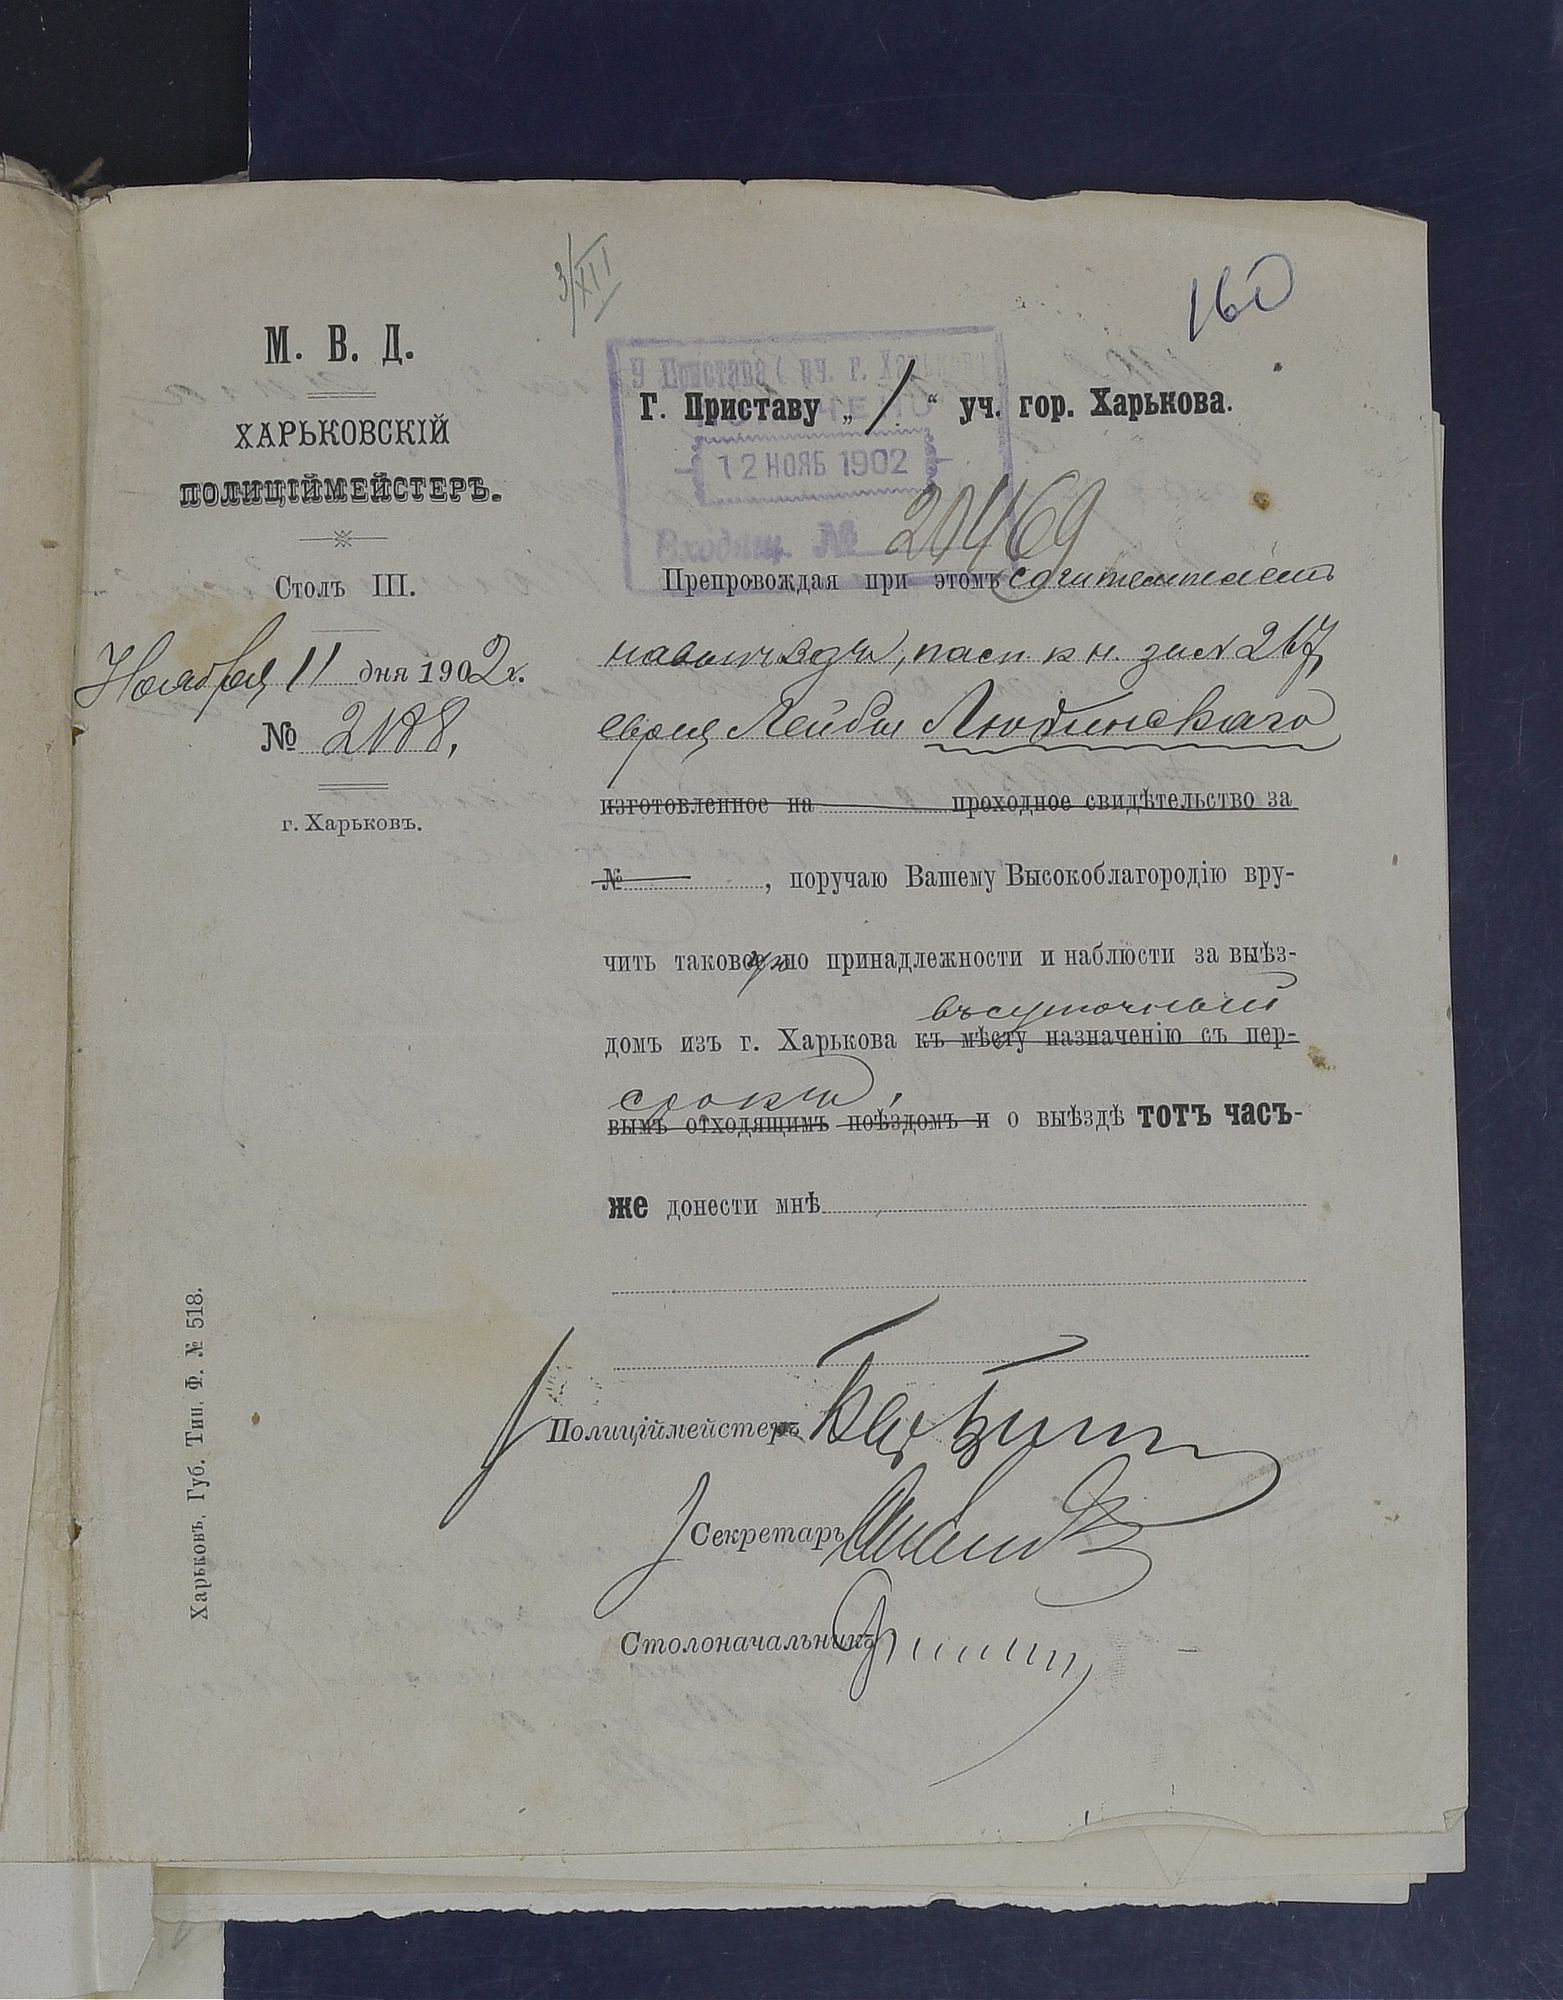 3/XII
160
М. В. Д.
ХАРЬКОВСКІЙ
ПОЛИЦІЙМЕЙСТЕРЪ.
Столъ III.
Ноября 11 дня 1902 г.
№ 2188,
г. Харьковъ.
Харьковъ, Губ. Тип. Ф. № 518.
У Пристава 1 уч. г. Харькова
12 НОЯБ 1902
Входящ. № 20469
Г. Приставу „1“ уч. гор. Харькова.
Препровождая при этомъ
пасп. кн. за № 217,
еврея Лейбы Любинскаго
изготовленное на проходное свидѣтельство за
№ , поручаю Вашему Высокоблагородію вру-
чить таковое по принадлежности и наблюсти за выѣз-
въ суточный
домъ изъ г. Харькова къ мѣсту назначенію съ пер-
срокъ,
вымъ отходящимъ поѣздомъ и о выѣздѣ тотъ часъ-
же донести мнѣ
Полиціймейстеръ
Секретарь
Столоначальникъ